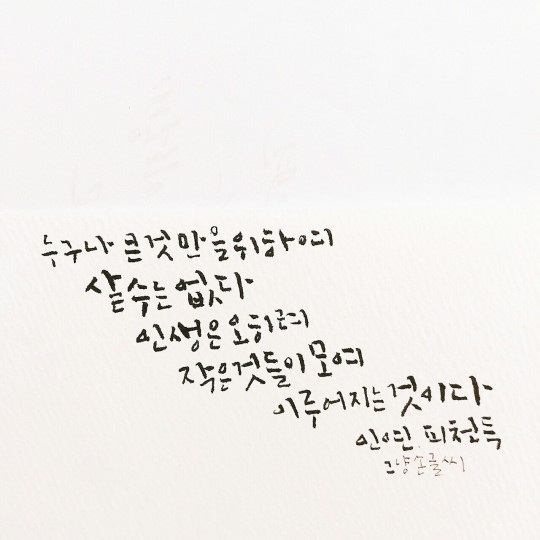 누구나 큰것만을위하여
살수는없다
인생은오히려
작은것들이모여
이루어지는것이다
인연. 피천득
그냥손글씨